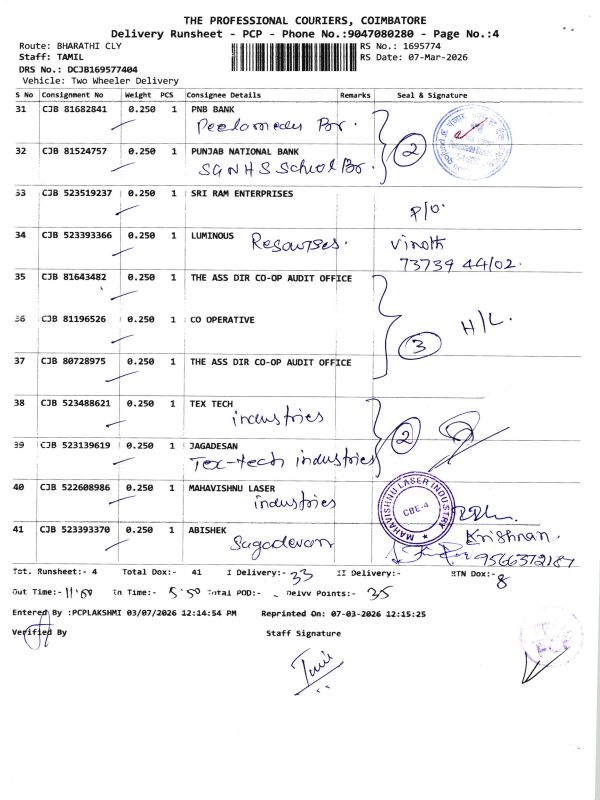 THE PROFESSIONAL COURIERS, COIMBATORE
Delivery Runsheet - PCP - Phone No.:9047080280 - Page No.:4
Route: BHARATHI CLY
RS No.: 1695774
Staff: TAMIL
RS Date: 07-Mar-2026
DRS No.: DCJB169577404
Vehicle: Two Wheeler Delivery
S No Consignment No Weight PCS Consignee Details Remarks Seal & Signature
31 CJB 81682841 0.250 1 PNB BANK
Peelamedu Br.
2
32 CJB 81524757 0.250 1 PUNJAB NATIONAL BANK
SGNHS School Br.
33 CJB 523519237 0.250 1 SRI RAM ENTERPRISES
P/O.
34 CJB 523393366 0.250 1 LUMINOUS Resourses. Vinoth
73739 44102.
35 CJB 81643482 0.250 1 THE ASS DIR CO-OP AUDIT OFFICE
36 CJB 81196526 0.250 1 CO OPERATIVE
3 H/L.
37 CJB 80728975 0.250 1 THE ASS DIR CO-OP AUDIT OFFICE
38 CJB 523488621 0.250 1 TEX TECH
industries
2
39 CJB 523139619 0.250 1 JAGADESAN
Tex-tech industries
40 CJB 522608986 0.250 1 MAHAVISHNU LASER
industries
MAHAVISHNU LASER INDUSTRY
CBE-4
41 CJB 523393370 0.250 1 ABISHEK
Sagadevan
Krishnan.
9566372187
Tot. Runsheet:- 4 Total Dox:- 41 I Delivery:- 33 II Delivery:- RTN Dox:- 8
Out Time:- 11:50 In Time:- 5:50 Total POD:- Delvy Points:- 35
Entered By :PCPLAKSHMI 03/07/2026 12:14:54 PM Reprinted On: 07-03-2026 12:15:25
Verified By Staff Signature